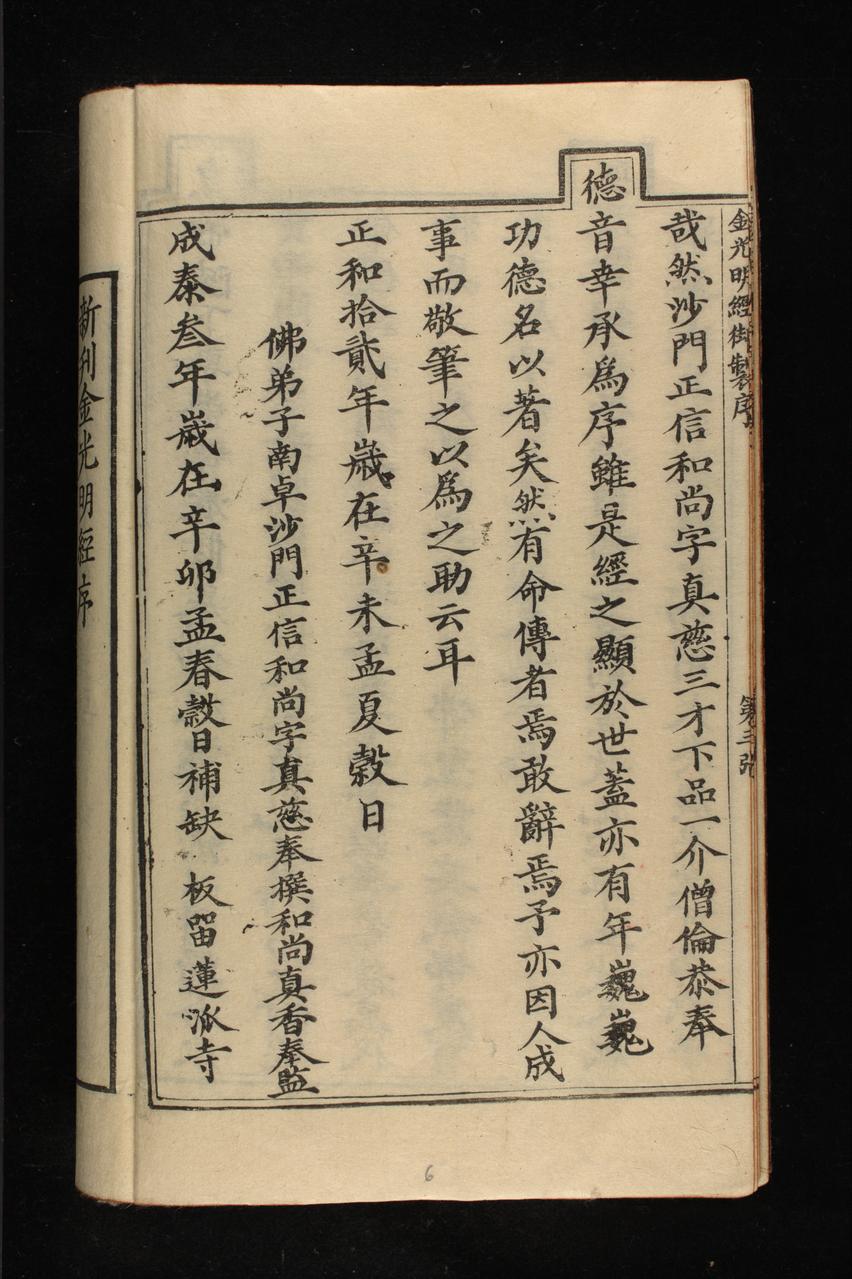 金光明經御製序 第三張
哉然沙門正信和尚字真慈三才下品一介僧倫恭奉
德音幸承爲序雖是經之顯於世蓋亦有年巍巍
功德名以著矣然有命傳者焉敢辭焉予亦因人成
事而敬筆之以爲之助云耳
正和拾貳年歲在辛未孟夏穀日
佛弟子南卓沙門正信和尚字真慈奉撰和尚真香奉監
成泰叁年歲在辛卯孟春穀日補缺 板留蓮派寺
新刊金光明經序
6